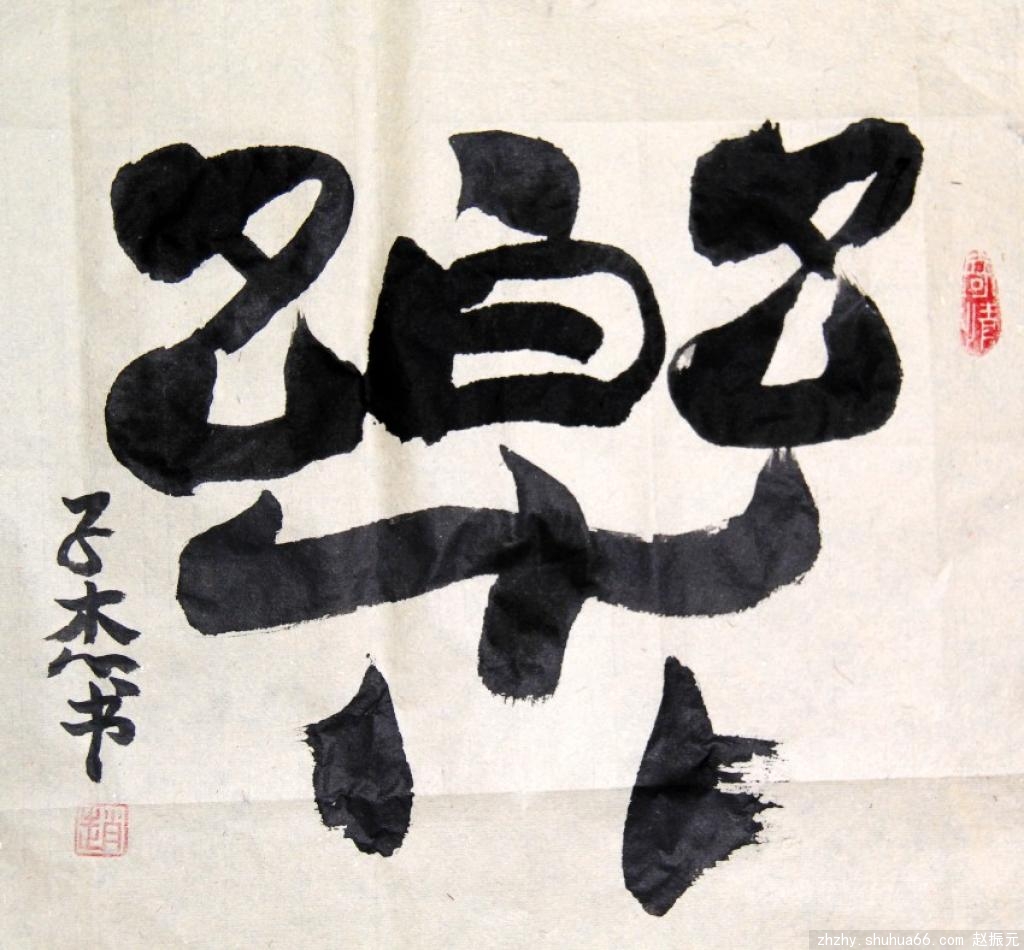 樂
寄情
子杰书
趙
zhzhy.shuhua66.com 赵振元